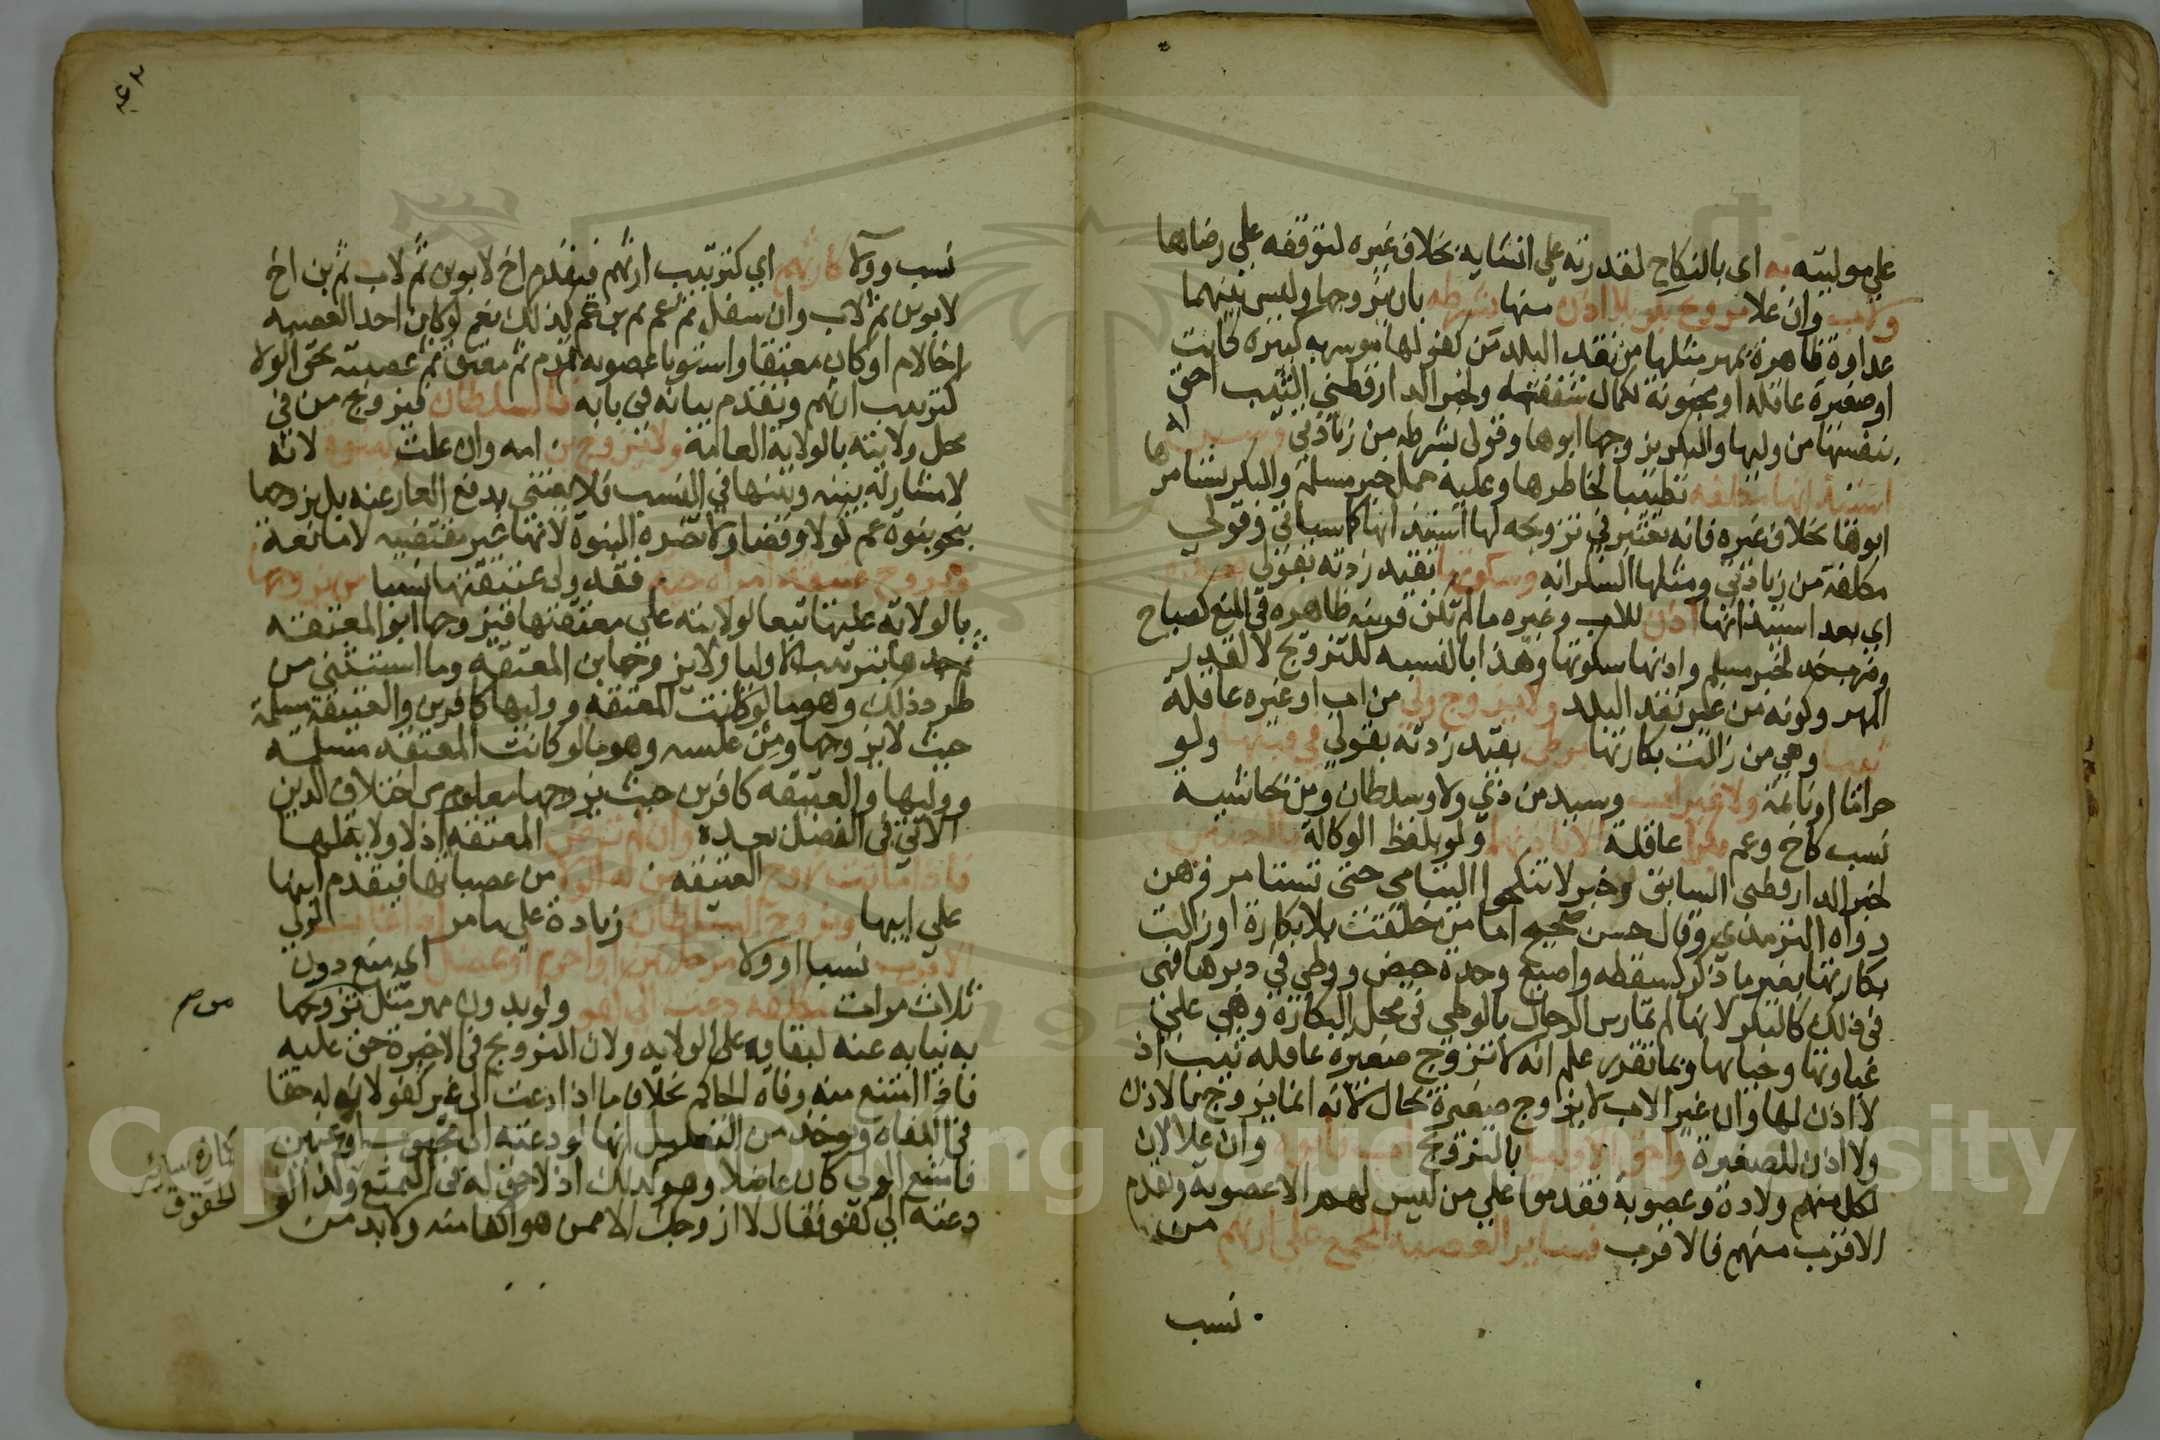 علي موليته به اى بالنكاح لقدرته علي انشايه بخلاف غيره لتوقفه علي رضاها
ولاب وان علا تزويج بكر بلا اذن منها بشرطه بان يزوجها وليس بينهما
عداوة ظاهرة بمهر مثلها من نقد البلد من كفو لها موسر به كبيرة كانت
او صغيرة عاقله او مجنونة لكمال شفقته ولخبر الدارقطني الثيب احق
بنفسها من وليها والبكر يزوجها ابوها وقولي بشرطه من زيادتي وسن له
استيذانها مكلفه تطييبا لخاطرها وعليه حمل خبر مسلم والبكر يستامرها
ابوها بخلاف غيره فانه يعتبر في تزويجه لها استيذانها كما سياتي وقولي
مكلفة من زيادتي ومثلها السكرانه وسكوتها بقيد زدته بقولي بعده
اي بعد استيذانها اذن للاب وغيره ما لم تكن قرينه ظاهره في المنع كصياح
وضرب خد لخبر مسلم واذنها سكوتها وهذا بالنسبه للتزويج لا لقدر
المهر وكونه من غير نقد البلد ولا يزوج ولي من اب او غيره عاقلة
ثيبا وهي من زالت بكارتها بوطي بقيد زدته بقولي في قبلها ولو
حراما او نائمة ولا غير اب وسيد من ذي ولا وسلطان ومن بحاشيه
نسب كاخ وعم بكرا عاقلة الا باذنهما ولو بلفظ الوكالة بالغتين
لخبر الدارقطني السابق وخبر لا تنكحوا اليتامي حتى تستامروهن
رواه الترمذي وقال حسن صحيح اما من خلقت بلا بكارة او زالت
بكارتها بغير ما ذكر كسقطه واصبع وحدة حيض ووطي في دبرها فهى
في ذلك كالبكر لانها لم تمارس الرجال بالوطي في محل البكارة وهي علي
غباوتها وحيائها وبما تقرر علم انه لا تزوج صغيرة عاقله ثيب اذ
لا اذن لها وان غير الاب لا يزوج صغيرة بحال لانه انما يزوج بالاذن
ولا اذن للصغيرة واحق الاوليا بالتزويج اب فابوه وان علا لان
لكل منهم ولادة وعصوبة فقدموا علي من ليس لهم الا عصوبة وقدم
الاقرب منهم فالاقرب فساير العصبه المجمع علي ارثهم من
نسب
نسب وولا كارثهم اي كترتيب ارثهم فيقدم اخ لابوين ثم لاب ثم بن اخ
لابوين ثم لاب وان سفل ثم عم ثم بن عم كذلك نعم لو كان احد العصبه
اخا لام او كان معتقا واستويا عصوبه قدم ثم معتق ثم عصبته بحق الولا
كترتيب ارثهم وتقدم بيانه في بابه فالسلطان فيزوج من في
محل ولايته بالولاية العامة ولا يزوج بن امه وان علت ببنوة لانه
لا مشاركه بينه وبينها في النسب فلا يعتني بدفع العار عنه بل يزوجها
بنحو بنوة عم كولا وقضا ولا تضره البنوة لانها غير مقتضيه لا مانعة
ويزوج عتيقة امراه حيه فقد ولي عتيقتها نسبا من يزوجها
بالولاية عليها تبعا لولايته علي معتقتها فيزوجها ابو المعتقه
ثم جدها بترتيب الاوليا ولا يزوجها بن المعتقه وما استثني من
طرد ذلك وهو ما لو كانت المعتقه ووليها كافرين والعتيقة مسلمة
حيث لا يزوجها ومن عكسه وهو ما لو كانت المعتقه مسلمة
ووليها والعتيقه كافرين حيث يزوجها معلوم من اختلاف الدين
الاتي في الفصل بعده وان لم ترض المعتقه اذ لا ولاية لها
فاذا ماتت زوج العتيقه من له الولا من عصباتها فيقدم ابنها
علي ابيها ويزوج السلطان زيادة علي ما مر اذا غاب الولي
الاقرب نسبا او ولا مرحلتين او احرم او عضل اي منع دون
ثلاث مرات مكلفه دعت الي كفو ولو بدون مهر مثل تزويجها من صح
به نيابه عنه لبقايه علي الولايه ولان التزويج في الاخيرة حق عليه
فاذا امتنع منه وفاه الحاكم بخلاف ما اذا دعت الى غير كفو لان له حقا
في الكفاه ويوخذ من التعليل انها لو دعته الي مجبوب او عنين
فامتنع الولي كان عاضلا وهو كذلك اذ لا حق له في التمتع وكذا لو
دعته الي كفو فقال لا ازوجك الا ممن هو اكفا منه ولا بد من
كما في سائر
الحقوق